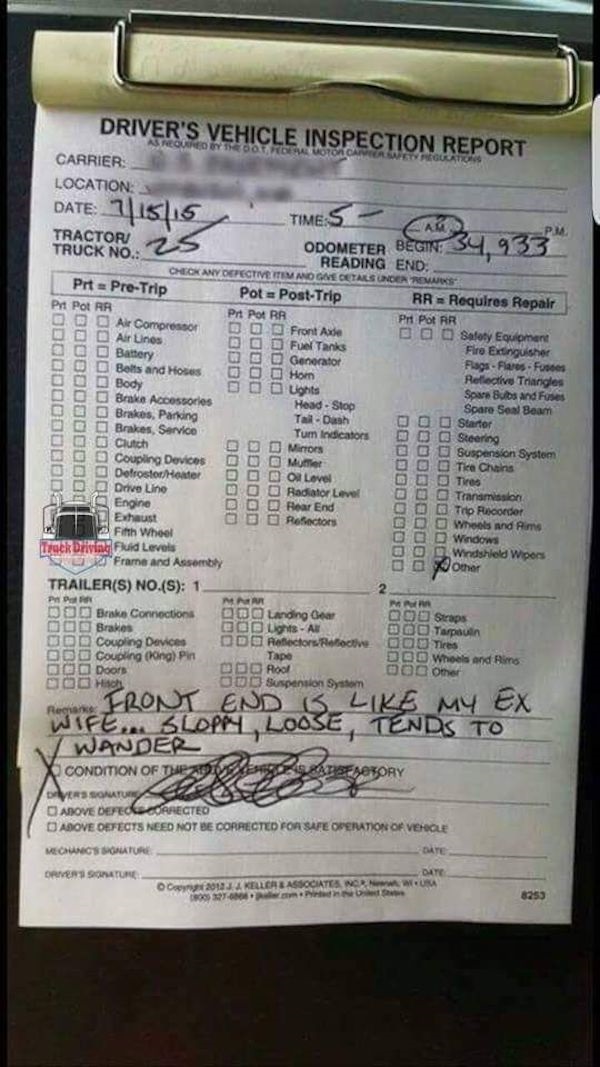 DRIVER'S VEHICLE INSPECTION REPORT
AS REQUIRED BY THE D.O.T. FEDERAL MOTOR CARRIER SAFETY REGULATIONS
CARRIER:
LOCATION:
DATE: 7/15/15 TIME: 5- A.M. P.M.
TRACTOR/ TRUCK NO.: 25 ODOMETER READING BEGIN: 34,933
END:
CHECK ANY DEFECTIVE ITEM AND GIVE DETAILS UNDER "REMARKS"
Prt = Pre-Trip Pot = Post-Trip RR = Requires Repair
Prt Pot RR
Air Compressor
Air Lines
Battery
Belts and Hoses
Body
Brake Accessories
Brakes, Parking
Brakes, Service
Clutch
Coupling Devices
Defroster/Heater
Drive Line
Engine
Exhaust
Fifth Wheel
Fluid Levels
Frame and Assembly
Truck Driving
Prt Pot RR
Front Axle
Fuel Tanks
Generator
Horn
Lights
Head - Stop
Tail - Dash
Turn Indicators
Mirrors
Muffler
Oil Level
Radiator Level
Rear End
Reflectors
Prt Pot RR
Safety Equipment
Fire Extinguisher
Flags - Flares - Fusees
Reflective Triangles
Spare Bulbs and Fuses
Spare Seal Beam
Starter
Steering
Suspension System
Tire Chains
Tires
Transmission
Trip Recorder
Wheels and Rims
Windows
Windshield Wipers
Other
TRAILER(S) NO.(S): 1 2
Prt Pot RR
Brake Connections
Brakes
Coupling Devices
Coupling (King) Pin
Doors
Hitch
Prt Pot RR
Landing Gear
Lights - All
Reflectors/Reflective
Tape
Roof
Suspension System
Prt Pot RR
Straps
Tarpaulin
Tires
Wheels and Rims
Other
Remarks: FRONT END IS LIKE MY EX
WIFE... SLOPPY, LOOSE, TENDS TO
WANDER
CONDITION OF THE ABOVE VEHICLE IS SATISFACTORY
DRIVER'S SIGNATURE
ABOVE DEFECTS CORRECTED
ABOVE DEFECTS NEED NOT BE CORRECTED FOR SAFE OPERATION OF VEHICLE
MECHANIC'S SIGNATURE: DATE
DRIVER'S SIGNATURE: DATE
© Copyright 2012 J. J. KELLER & ASSOCIATES, INC.®, Neenah, WI • USA
(800) 327-6868 • jjkeller.com • Printed in the United States
8253